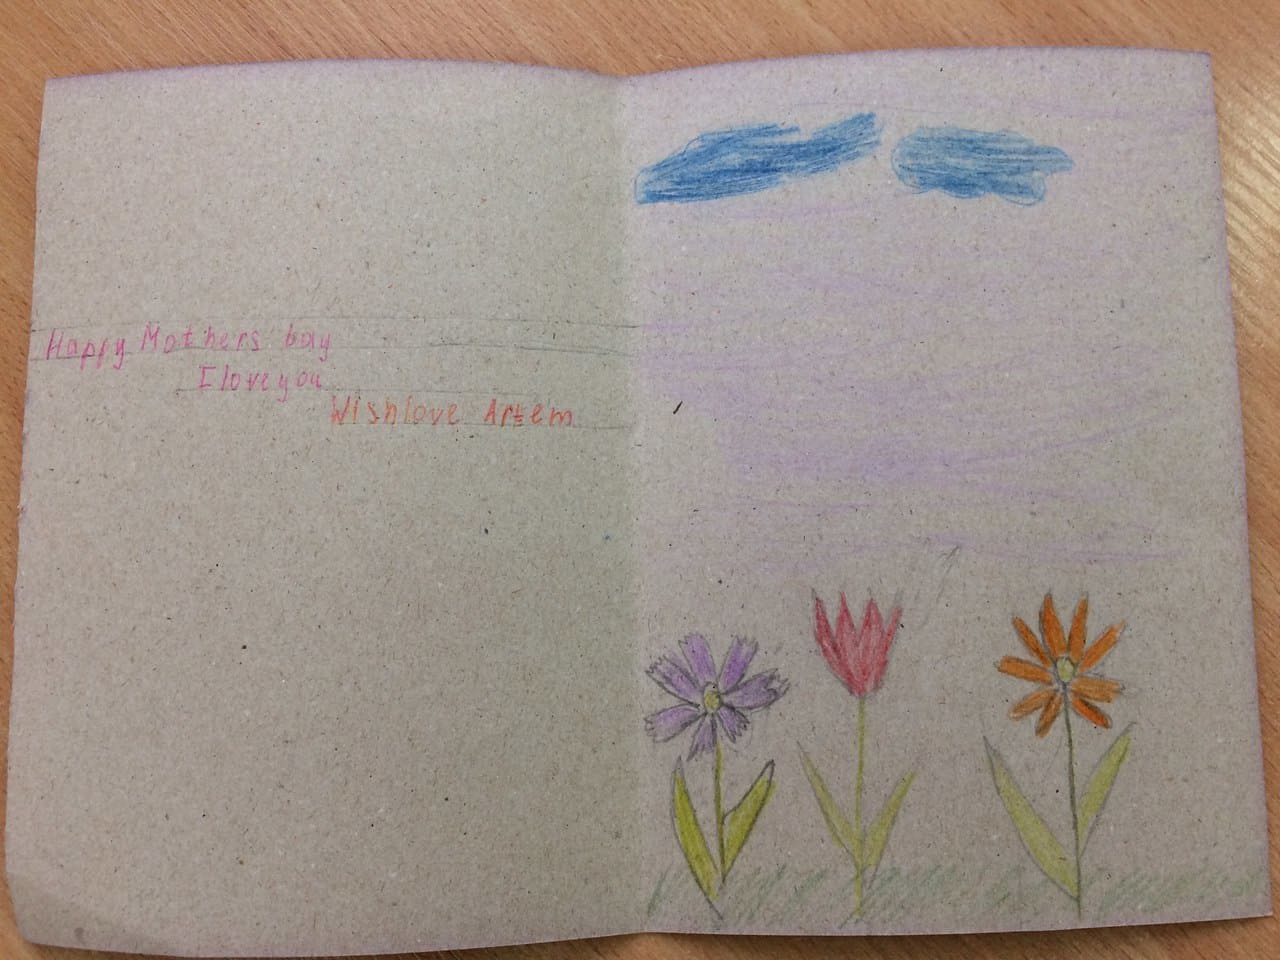 Happy Mothers bay
I love you
Wish love Artem